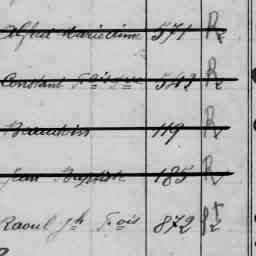 Alfred Marie Aimé 571 R
Constant Fois 542 R
Beaudoin 119 R
Jean Baptiste 185 R
Raoul Jh Fois 872